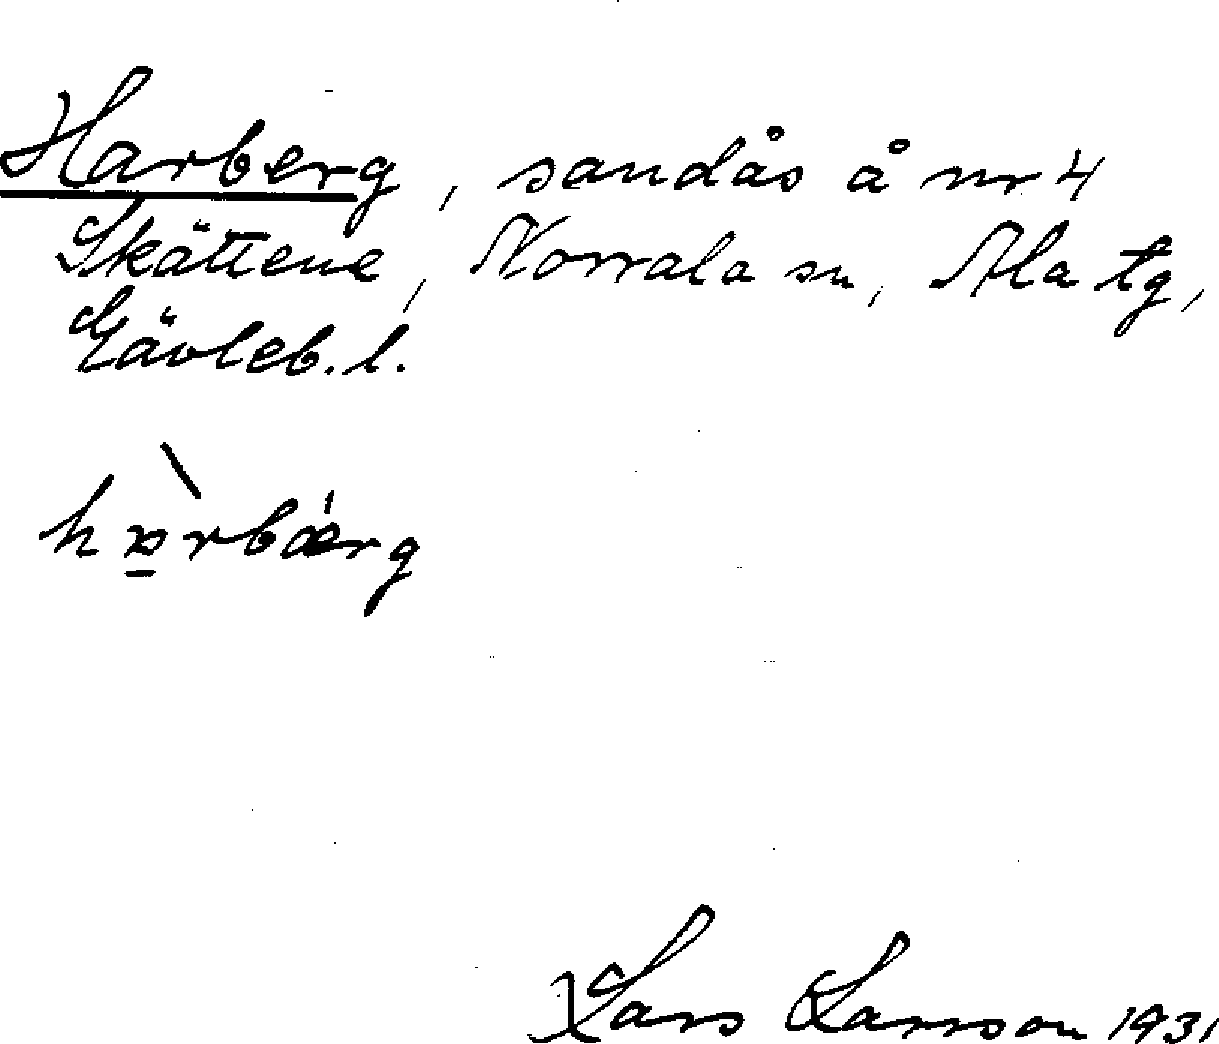 Harberg, sandås å nr 4
Skättene, Norrala sn, Ala tg,
Gävleb. l.
Lars Larsson 1931